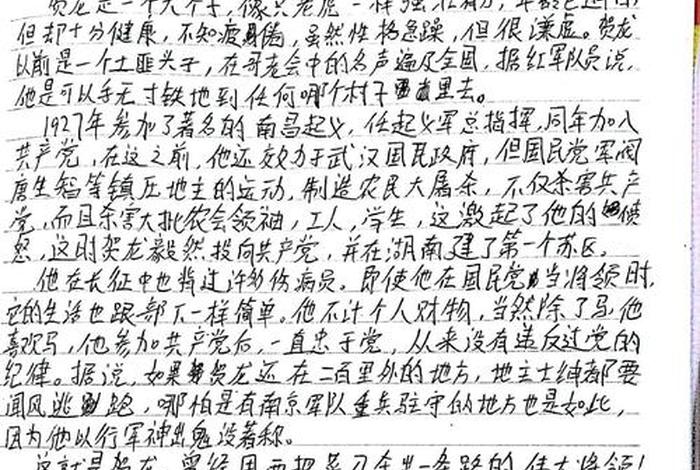 贺龙是一个大个子,像只老虎一样强壮有力,年龄已过
但却十分健康,不知疲倦,虽然性格急躁,但很谦虚。贺龙
以前是一个土匪头子,在哥老会中的名声遍及全国,据红军队员说,
他是可以手无寸铁地到任何哪个村子里去。
1927年参加了著名的南昌起义,任起义军总指挥,同年加入
共产党,在这之前,他还效力于武汉国民政府,但国民党军阀
唐生智等镇压地主的运动,制造农民大屠杀,不仅杀害共产
党,而且杀害大批农会领袖,工人,学生,这激起了他的愤
怒,这则贺龙毅然投向共产党,并在湖南建了第一个苏区。
他在长征中也背过许多伤病员。即使他在国民党当将领时,
它的生活也跟部下一样简单。他不计个人财物,当然除了马,他
喜欢马,他参加共产党后,一直忠于党,从来没有违反过党的
纪律。据说,如果贺龙还在二百里外的地方,地主士绅都要
闻风逃跑,哪怕是有南京军队重兵驻守的地方也是如此,
因为他以行军神出鬼没著称。
这就是贺龙,曾经用两把菜刀杀出一条路的伟大将领!